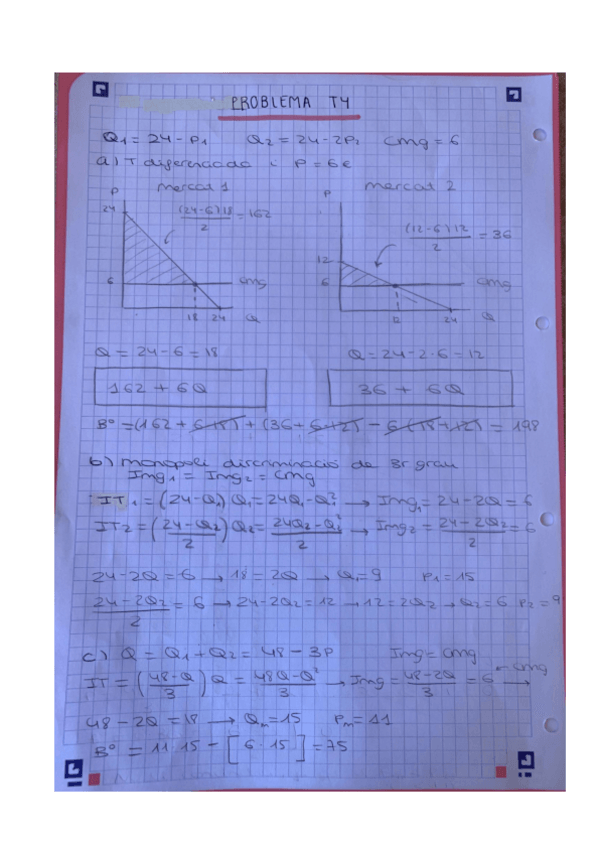 PROBLEMA T4
Q1 = 24 - P1    Q2 = 24 - 2P2    Cmg = 6
a) T diferenciada i P = 6€
mercat 1    mercat 2
P    P
24    (24-6)18/2 = 162    (12-6)12/2 = 36
12
6    Cmg    6    Cmg
18    24    Q    24    Q
Q = 24 - 6 = 18    Q = 24 - 2·6 = 12
162 + 6Q    36 + 6Q
Bº = (162 + 6·18) + (36 + 6·12) - 6(18+12) = 198
b) monopoli discriminació de 3r grau
Img1 = Img2 = Cmg
IT1 = (24-Q1) Q1 = 24Q1 - Q1² → Img1 = 24 - 2Q = 6
IT2 = (24-Q2/2) Q2 = 24Q2 - Q2²/2 → Img2 = 24 - 2Q2/2 = 6
24 - 2Q = 6 → 18 = 2Q → Q1 = 9    P1 = 15
24 - 2Q2/2 = 6 → 24 - 2Q2 = 12 → 12 = 2Q2 → Q2 = 6    P2 = 9
c) Q = Q1 + Q2 = 48 - 3P    Img = Cmg
IT = (48-Q/3) Q = 48Q - Q²/3 → Img = 48 - 2Q/3 = 6 ← Cmg →
48 - 2Q = 18 → Qm = 15    Pm = 11
Bº = 11·15 - [6·15] = 75